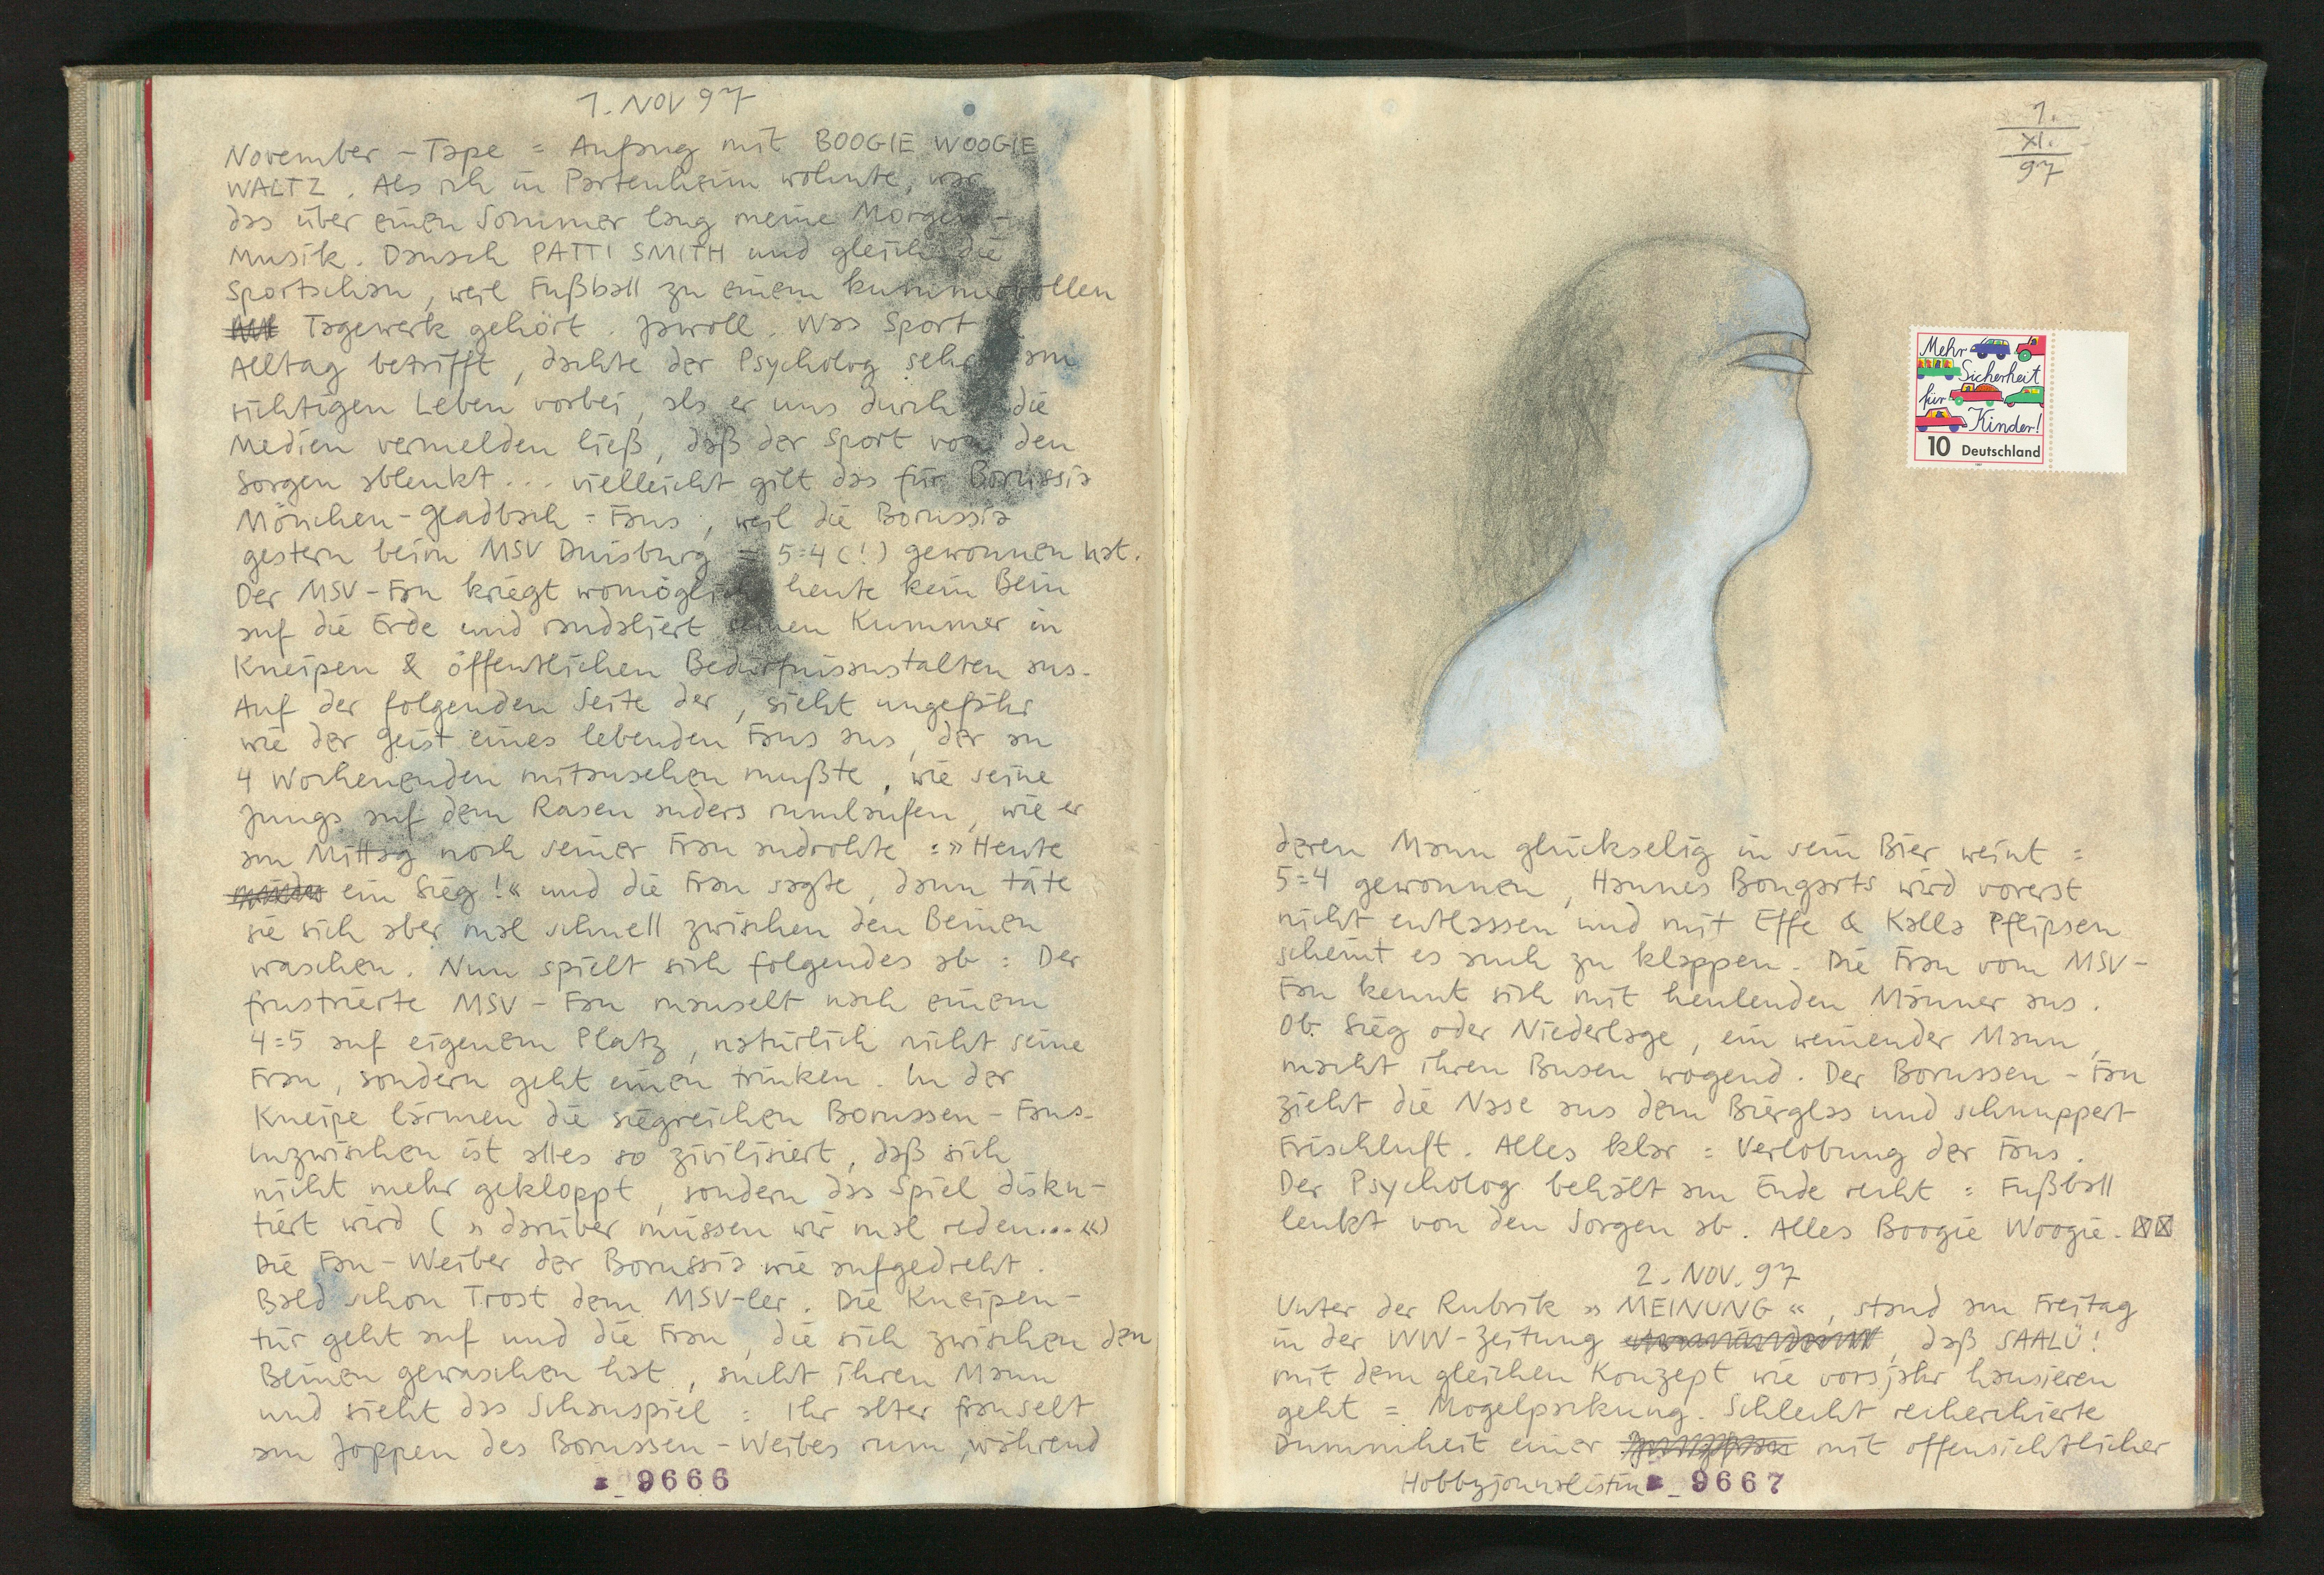 1. NOV 97
November - Tape = Anfang mit BOOGIE WOOGIE
WALTZ. Als ich in Partenheim wohnte, war
das über einen Sommer lang meine Morgen-
Musik. Danach PATTI SMITH und gleich die
Sportschau, weil Fußball zu einem kummervollen
Tagewerk gehört. Jawoll. Was Sport
Alltag betrifft, dachte der Psycholog sehr am
richtigen Leben vorbei, als er uns durch die
Medien vermelden ließ, daß der Sport von den
Sorgen ablenkt... vielleicht gilt das für Borussia
Mönchen-Gladbach=Fans, weil die Borussia
gestern beim MSV Duisburg = 5=4 (!) gewonnen hat.
Der MSV-Fan kriegt womöglich heute kein Bein
auf die Erde und randaliert seinen Kummer in
Kneipen & öffentlichen Bedürfnisanstalten aus.
Auf der folgenden Seite der, sieht ungefähr
wie der Geist eines lebenden Fans aus, der an
4 Wochenenden mitansehen mußte, wie seine
Jungs auf dem Rasen anders rumlaufen, wie er
am Mittag noch seiner Frau androhte =» Heute
ein Sieg!« und die Frau sagte, dann täte
sie sich aber mal schnell zwischen den Beinen
waschen. Nun spielt sich folgendes ab = Der
frustrierte MSV-Fan mauselt nach einem
4=5 auf eigenem Platz, natürlich nicht seine
Frau, sondern geht einen trinken. In der
Kneipe lärmen die siegreichen Borussen-Fans.
Inzwischen ist alles so zivilisiert, daß sich
nicht mehr gekloppt, sondern das Spiel disku-
tiert wird (» darüber müssen wir mal reden...«)
Die Fan-Weiber der Borussia wie aufgedreht.
Bald schon Trost dem MSV-ler. Die Kneipen-
tür geht auf und die Frau, die sich zwischen den
Beinen gewaschen hat, sucht ihren Mann
und sieht das Schauspiel = Ihr alter franselt
am Joppen des Borussen-Weibes rum, während
9666
1.
XI.
97
Mehr
Sicherheit
für
Kinder!
10 Deutschland
deren Mann glückselig in sein Bier weint =
5=4 gewonnen, Hannes Bongarts wird vorerst
nicht entlassen und mit Effe & Kalla Pflipsen
scheint es auch zu klappen. Die Frau vom MSV-
Fan kennt sich mit heulenden Männer aus.
Ob Sieg oder Niederlage, ein weinender Mann,
macht ihren Busen wogend. Der Borussen-Fan
zieht die Nase aus dem Bierglas und schnuppert
Frischluft. Alles klar = Verlobung der Fans.
Der Psycholog behält am Ende recht = Fußball
lenkt von den Sorgen ab. Alles Boogie Woogie.
2. NOV. 97
Unter der Rubrik » MEINUNG «, stand am Freitag
in der WW-Zeitung, daß SAALÜ!
mit dem gleichen Konzept wie vorsjahr hausieren
geht = Mogelpackung. Schlecht recherchierte
Dummheit einer mit offensichtlicher
Hobbyjournalistin
9667